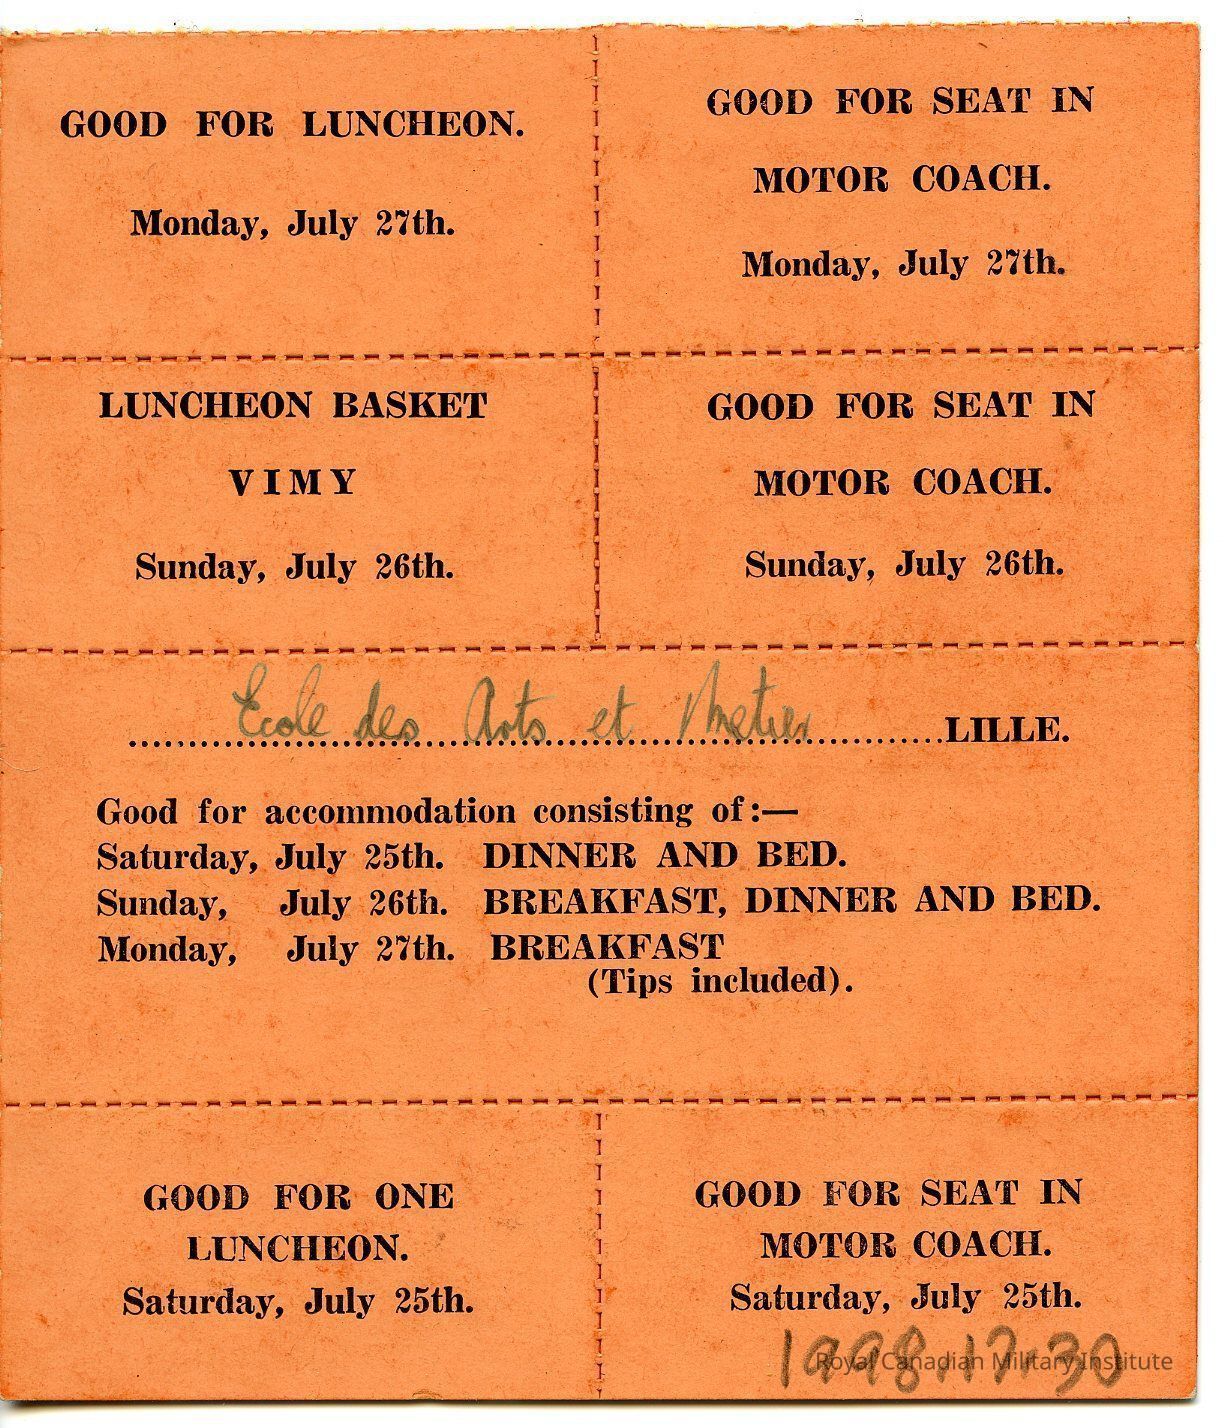 GOOD FOR LUNCHEON.
Monday, July 27th.
GOOD FOR SEAT IN
MOTOR COACH.
Monday, July 27th.
LUNCHEON BASKET
VIMY
Sunday, July 26th.
GOOD FOR SEAT IN
MOTOR COACH.
Sunday, July 26th.
Ecole des Arts et Metier LILLE.
Good for accommodation consisting of:—
Saturday, July 25th. DINNER AND BED.
Sunday, July 26th. BREAKFAST, DINNER AND BED.
Monday, July 27th. BREAKFAST
(Tips included).
GOOD FOR ONE
LUNCHEON.
Saturday, July 25th.
GOOD FOR SEAT IN
MOTOR COACH.
Saturday, July 25th.
1998.17.30
Royal Canadian Military Institute